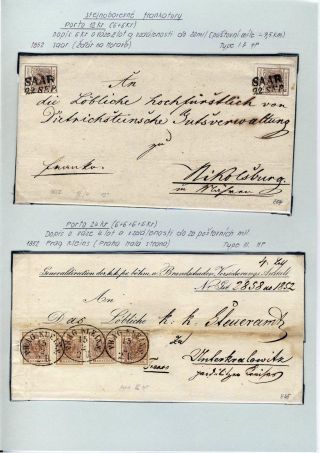 stejnobarevné frankatury
Porto 12 kr. (6+6kr)
Dopis 6kr o váze 2 lot a vzdálenosti do 20 mil (poštovní míle - 7,5 km)
1852 Saar (Žďár na Moravě) Type I.
SAAR SAAR
22 SEP. 22 SEP.
An
die Löbliche hochfürstlich von
Dietrichsteinsche Gutsverwaltung
franko.
Nikolsburg
in Mähren
Porto 24 kr (6+6+6+6kr)
Dopis o váze 4 lot a vzdálenosti do 20 poštovních mil
1852 Prag Kleins (Praha malá strana) Type III.
Generaldirection der k.k. pr. böhm. Brandschaden Versicherungs Anstalt
2858 1852
An
Das Löbliche k. k. Steueramt
zu
Unterkralowitz